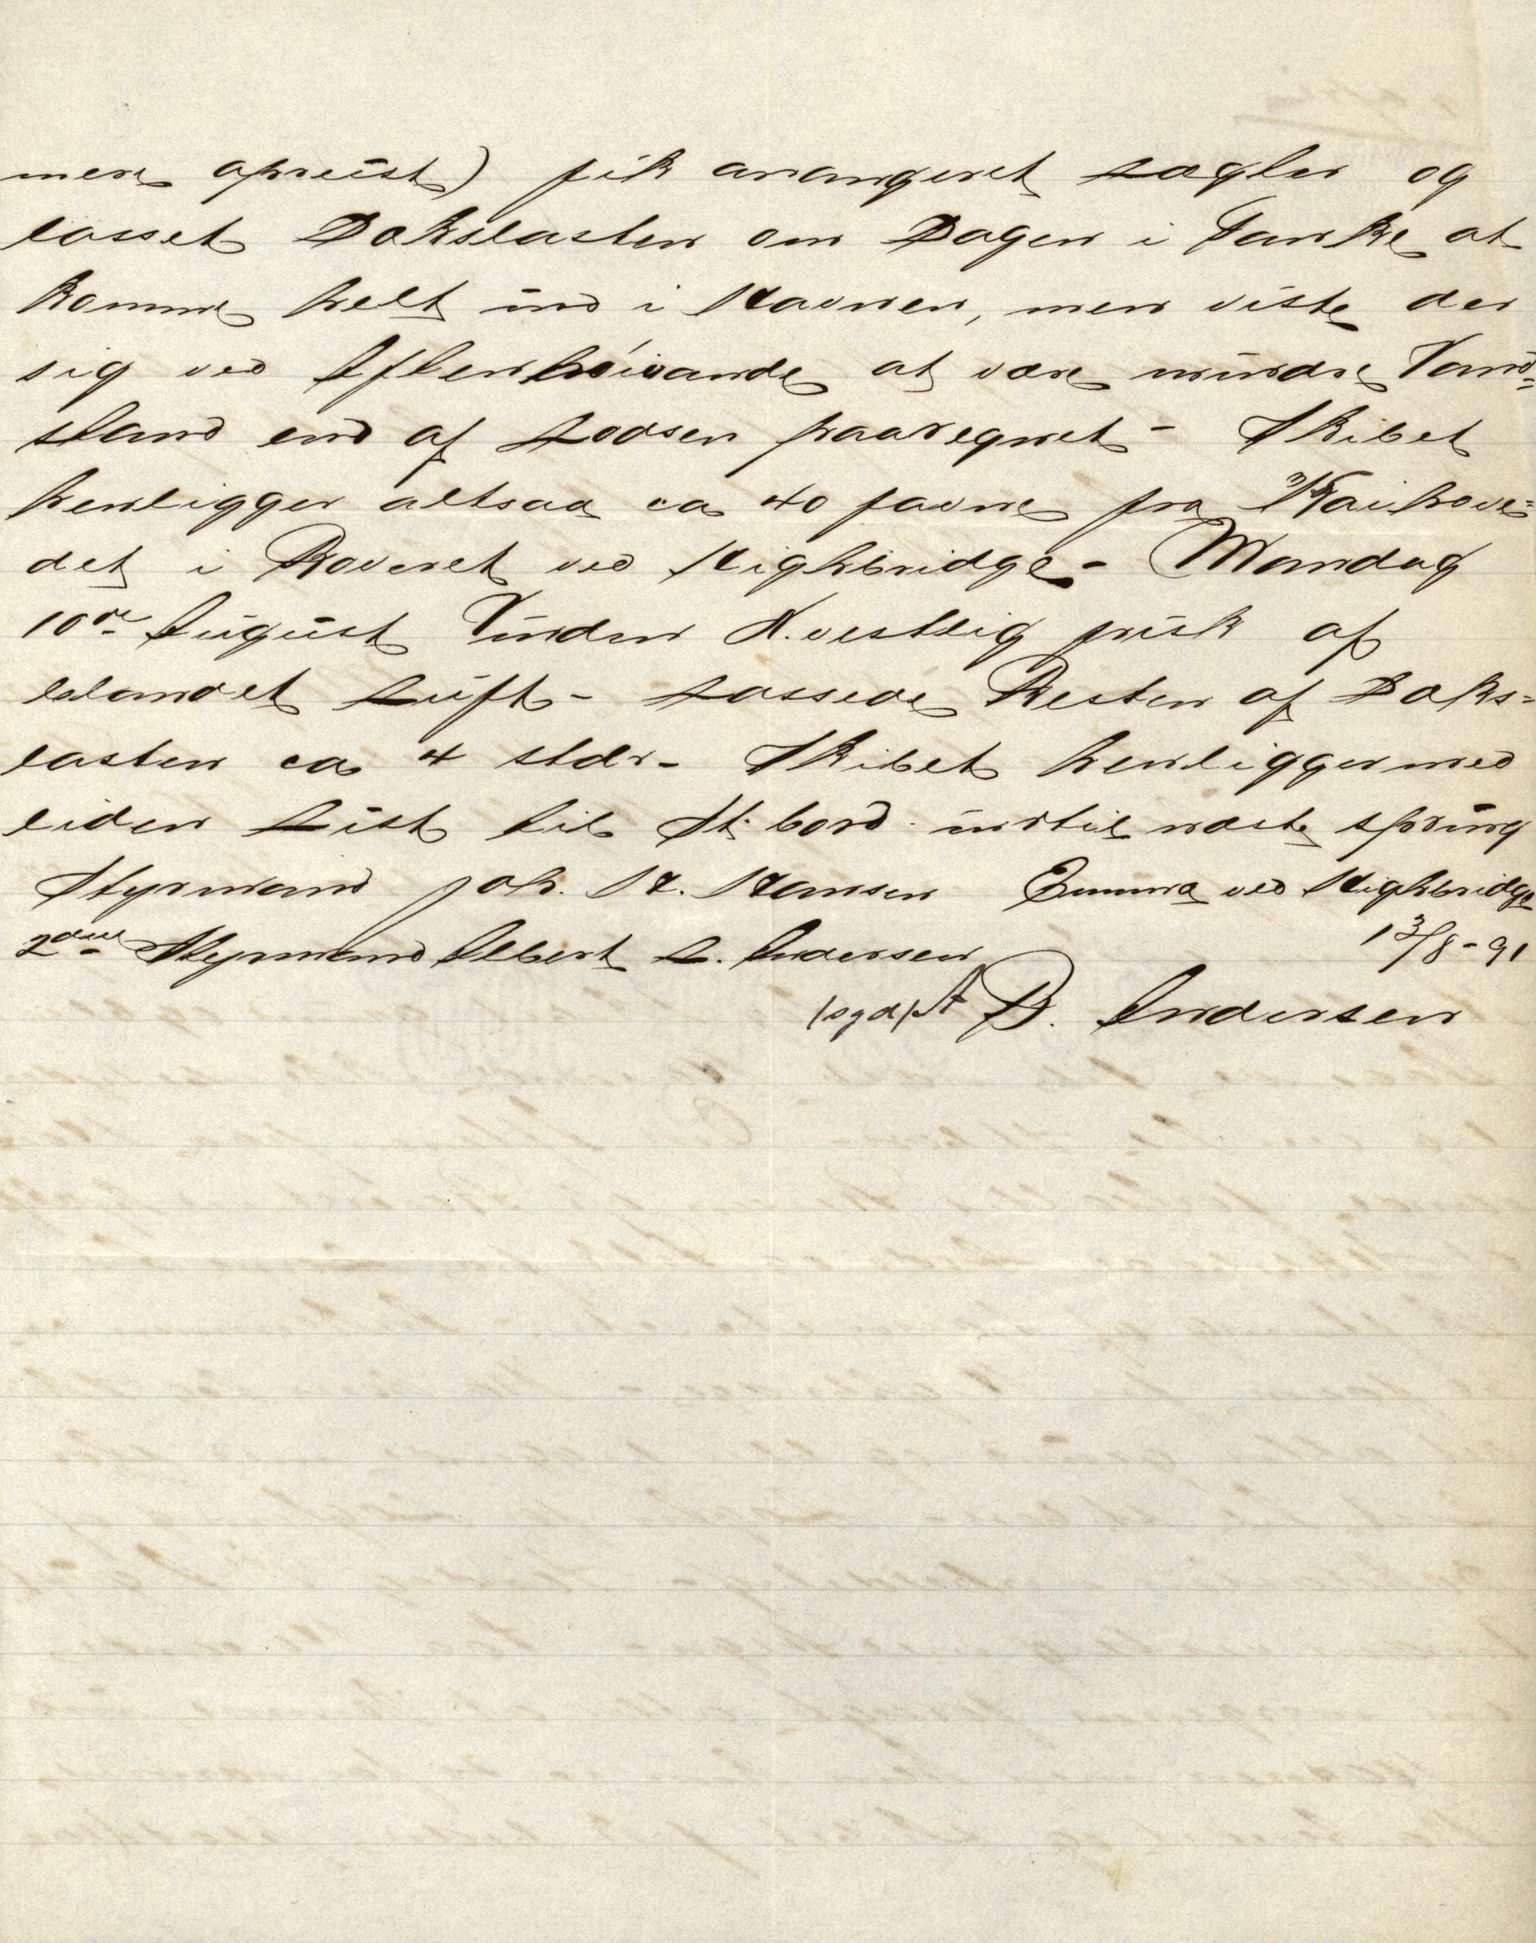 mere opreist) fik arrangeret sægler og
losset Dækslasten om Dagen i Tanke at
komme helt ind i Havnen, men viste der
sig ved Aftenhöivande at være mindre Vand=
stand end af Lodsen paaregnet - Skibet
henligger altsaa ca 40 favne fra Kaihove=
det i Roveret ved Highbridge - Mandag
10de August Vinden N. vestlig frisk af
blandet Luft - Lossede Resten af Dæks=
lasten ca 4 stdr - Skibet henligger med
liden List til St. bord indtil næste spring
Styrmand Joh. H. Hansen Emma ved Highbridge
13/8 - 91
2den Styrmand Albert L. Andersen
(sgd) A B. Andersen